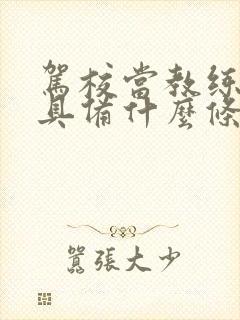 驾校當教练
具備什麼條
囂張大少